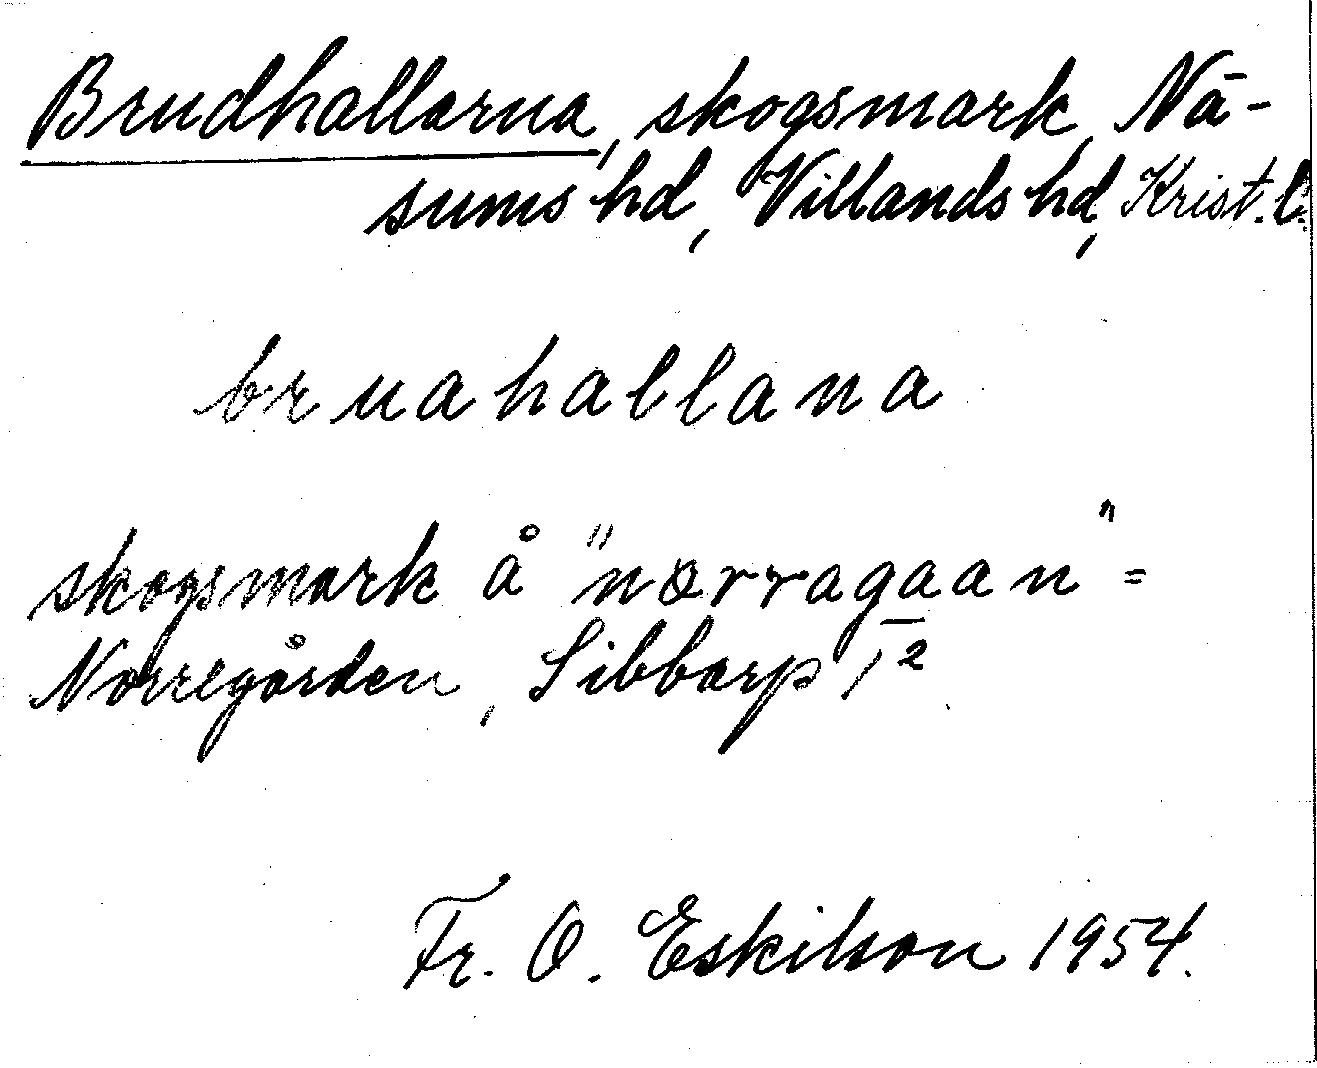 Brudhallarna, skogsmark, Nä-
sums hd, Villands hd, Krist. l.
bruahallana
skogsmark å "nørragaan" =
Norregården, Sibbarp 1²
Fr. O. Eskilson 1954.